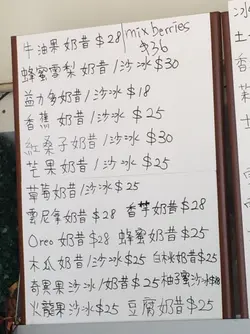 牛油果奶昔$28/mix berries
$36
蜂蜜雪梨奶昔/沙冰$30
益力多奶昔/沙冰$18
香蕉奶昔/沙冰$25
紅桑子奶昔/沙冰$30
芒果奶昔/沙冰$25
草莓奶昔/沙冰$25
雲尼拿奶昔$28 香芋奶昔$28
Oreo 奶昔$28 蜂蜜奶昔$25
木瓜奶昔/沙冰$25 白桃奶昔$25
奇異果沙冰/奶昔$25 柚子蜜沙冰$18
火龍果沙冰$25 豆腐奶昔$25